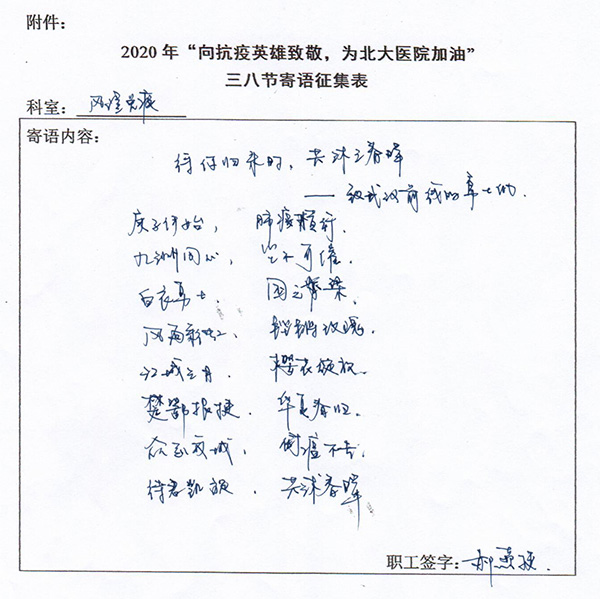 附件：
2020 年“向抗疫英雄致敬，为北大医院加油”
三八节寄语征集表
科室：风湿免疫
寄语内容：
待你归来时，共沐之春晖
——致武汉前线的勇士们
庚子伊始，肺疫横行．
九洲同心，坚不可摧．
白衣勇士，国之脊梁．
风雨彩虹，铿锵玫瑰．
江城三月，樱花绽放．
楚鄂报捷．华夏春归．
众正成城，何瘟不去
待君凯旋．共沐春晖
职工签字：郝燕捷